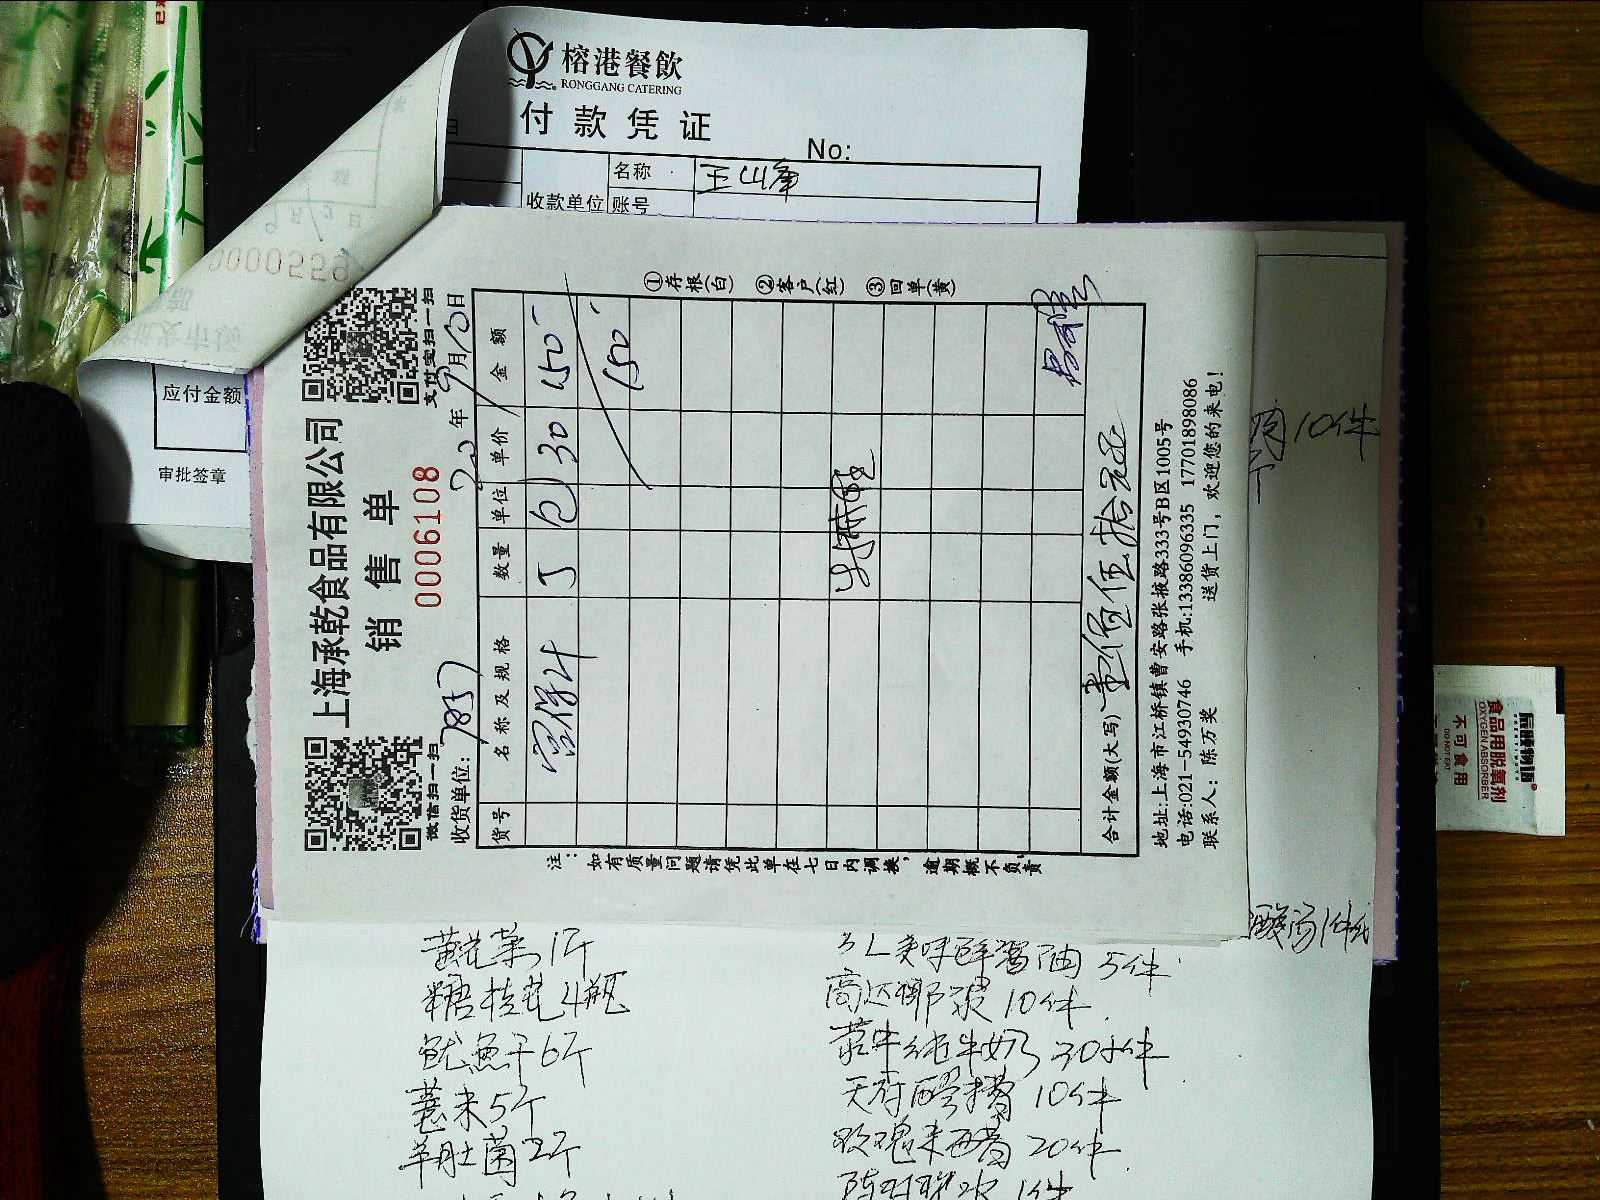 榕港餐飲
RONGGANG CATERING
付款凭证
No:
名称
收款单位 账号
应付金额
审批签章
0000559
上海承乾食品有限公司
销售单
0006108
微信扫一扫
支付宝扫一扫
收货单位: 7857
20 年 9 月 10 日
货号 名称及规格 数量 单位 单价 金额
5 包 30 150-
150-
合计金额(大写) 壹佰伍拾元正
①存根(白) ②客户(红) ③回单(黄)
注: 如有质量问题请凭此单在七日内调换, 逾期概不负责
地址:上海市江桥镇曹安路张掖路333号B区1005号
电话:021-54930746 手机:13386096335 17701898086
联系人: 陈万奖 送货上门, 欢迎您的来电!
10件
酸汤1件
黄花菜1斤
糖桂花4瓶
鱿鱼干6斤
薏米5斤
羊肚菌2斤
美味鲜酱油 5件
高达椰浆 10件
蒙牛纯牛奶 30件
天府醪糟 10件
玫瑰米醋 20件
1件
食品用脱氧剂
OXYGEN ABSORBER
不可食用
DO NOT EAT